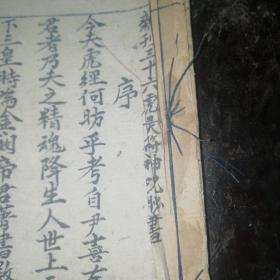 新刊三十六虎晨符神咒秘書
序
今夫虎經何昉乎考自尹喜
君者乃天之精魂降生人世上
下三皇時為金闕帝君著書